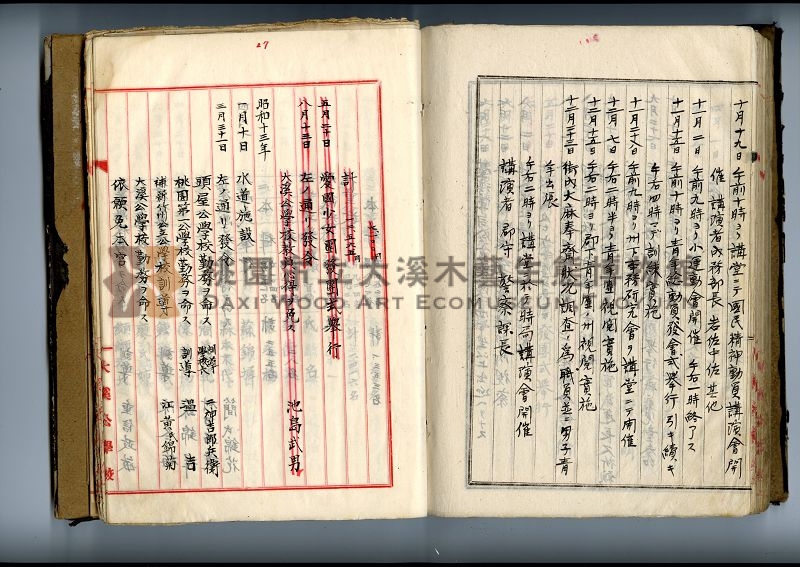 十月十九日 午前十時ヨリ講堂ニテ國民精神動員講演會開
催 講演者內務部長 岩佐中佐 其他
十一月二日 午前九時ヨリ小運動會開催 午后一時終了ス
十一月十五日 午前九時ヨリ青年總動員發會式舉行 引キ續キ
午后四時マデ訓練實施
十一月二十八日 午前九時ヨリ州下 研究會ヲ講堂ニテ開催
十二月七日 午后二時半ヨリ青年團視閱實施
十二月十五日 午后二時ヨリ郡下青年團州視閱實施
十二月二十三日 街內大麻奉齋狀況調查ノ為職員並ニ男子青
年出張
午后二時ヨリ講堂ニ於テ時局講演會開催
講演者 郡守 警察課長
27
計
五月二十日 愛國少女團發團式舉行
八月十三日 左ノ通リ發令
大溪公學校教員心得ヲ免ス 池島武男
昭和十三年
四月十日 水道施設
三月三十一日 左ノ通リ發令
頭屋公學校勤務ヲ命ス 訓導 學校長 二神吉郎兵衛
桃園第一公學校勤務ヲ命ス 訓導 溫吉
補新竹州公立公學校訓導
大溪公學校勤務ヲ命ス 江黃氏錦菊
依願免本官
大溪公學校
桃園市立大溪木藝生態博物館
DAXI WOOD ART ECOMUSEUM